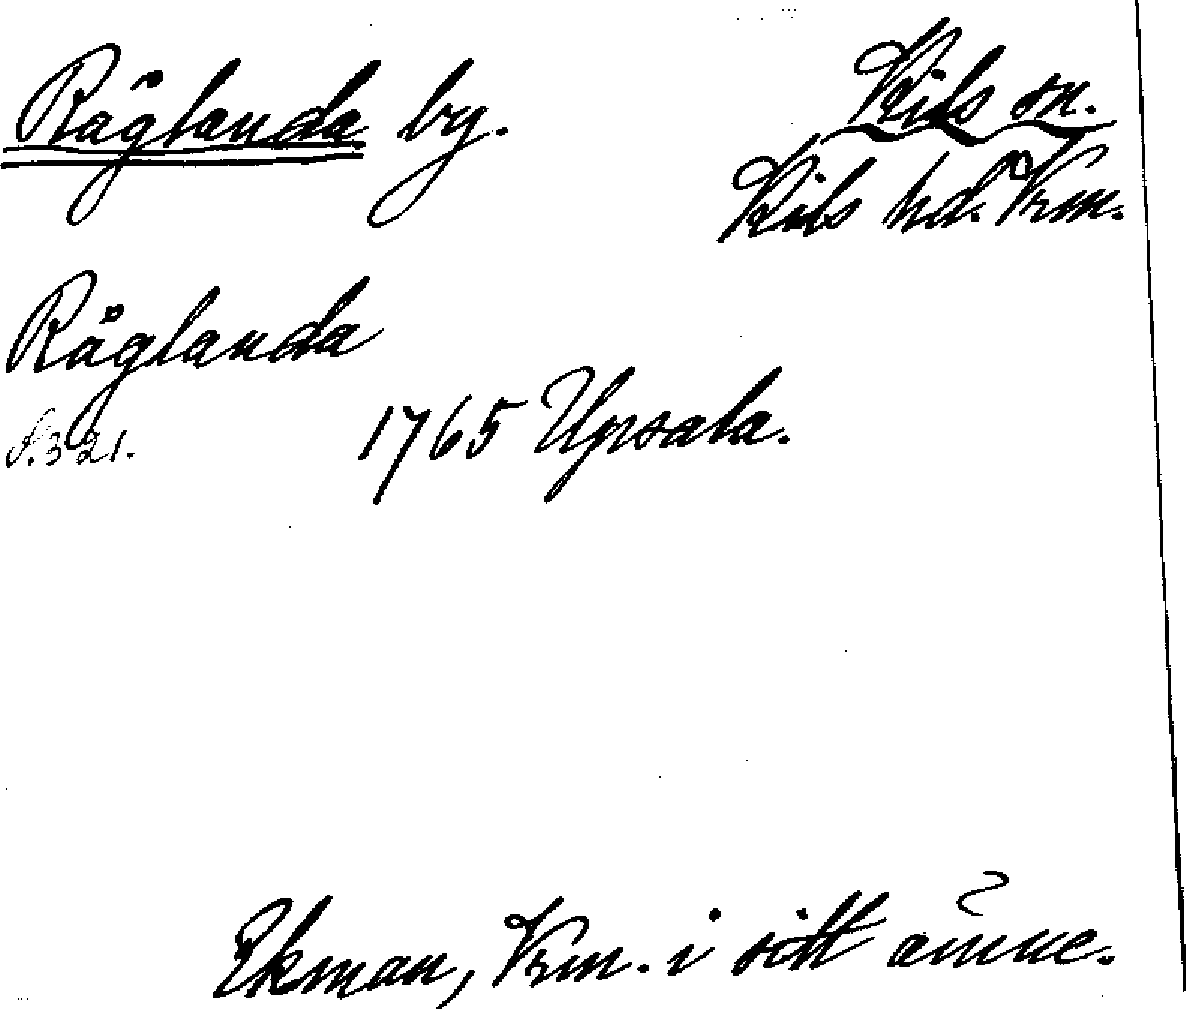 Råglanda by.
Kils sn.
Kils hd. Vrm.
Råglanda
S. 321.
1765 Upsala.
Ekman, Vrm. i sitt ämne.